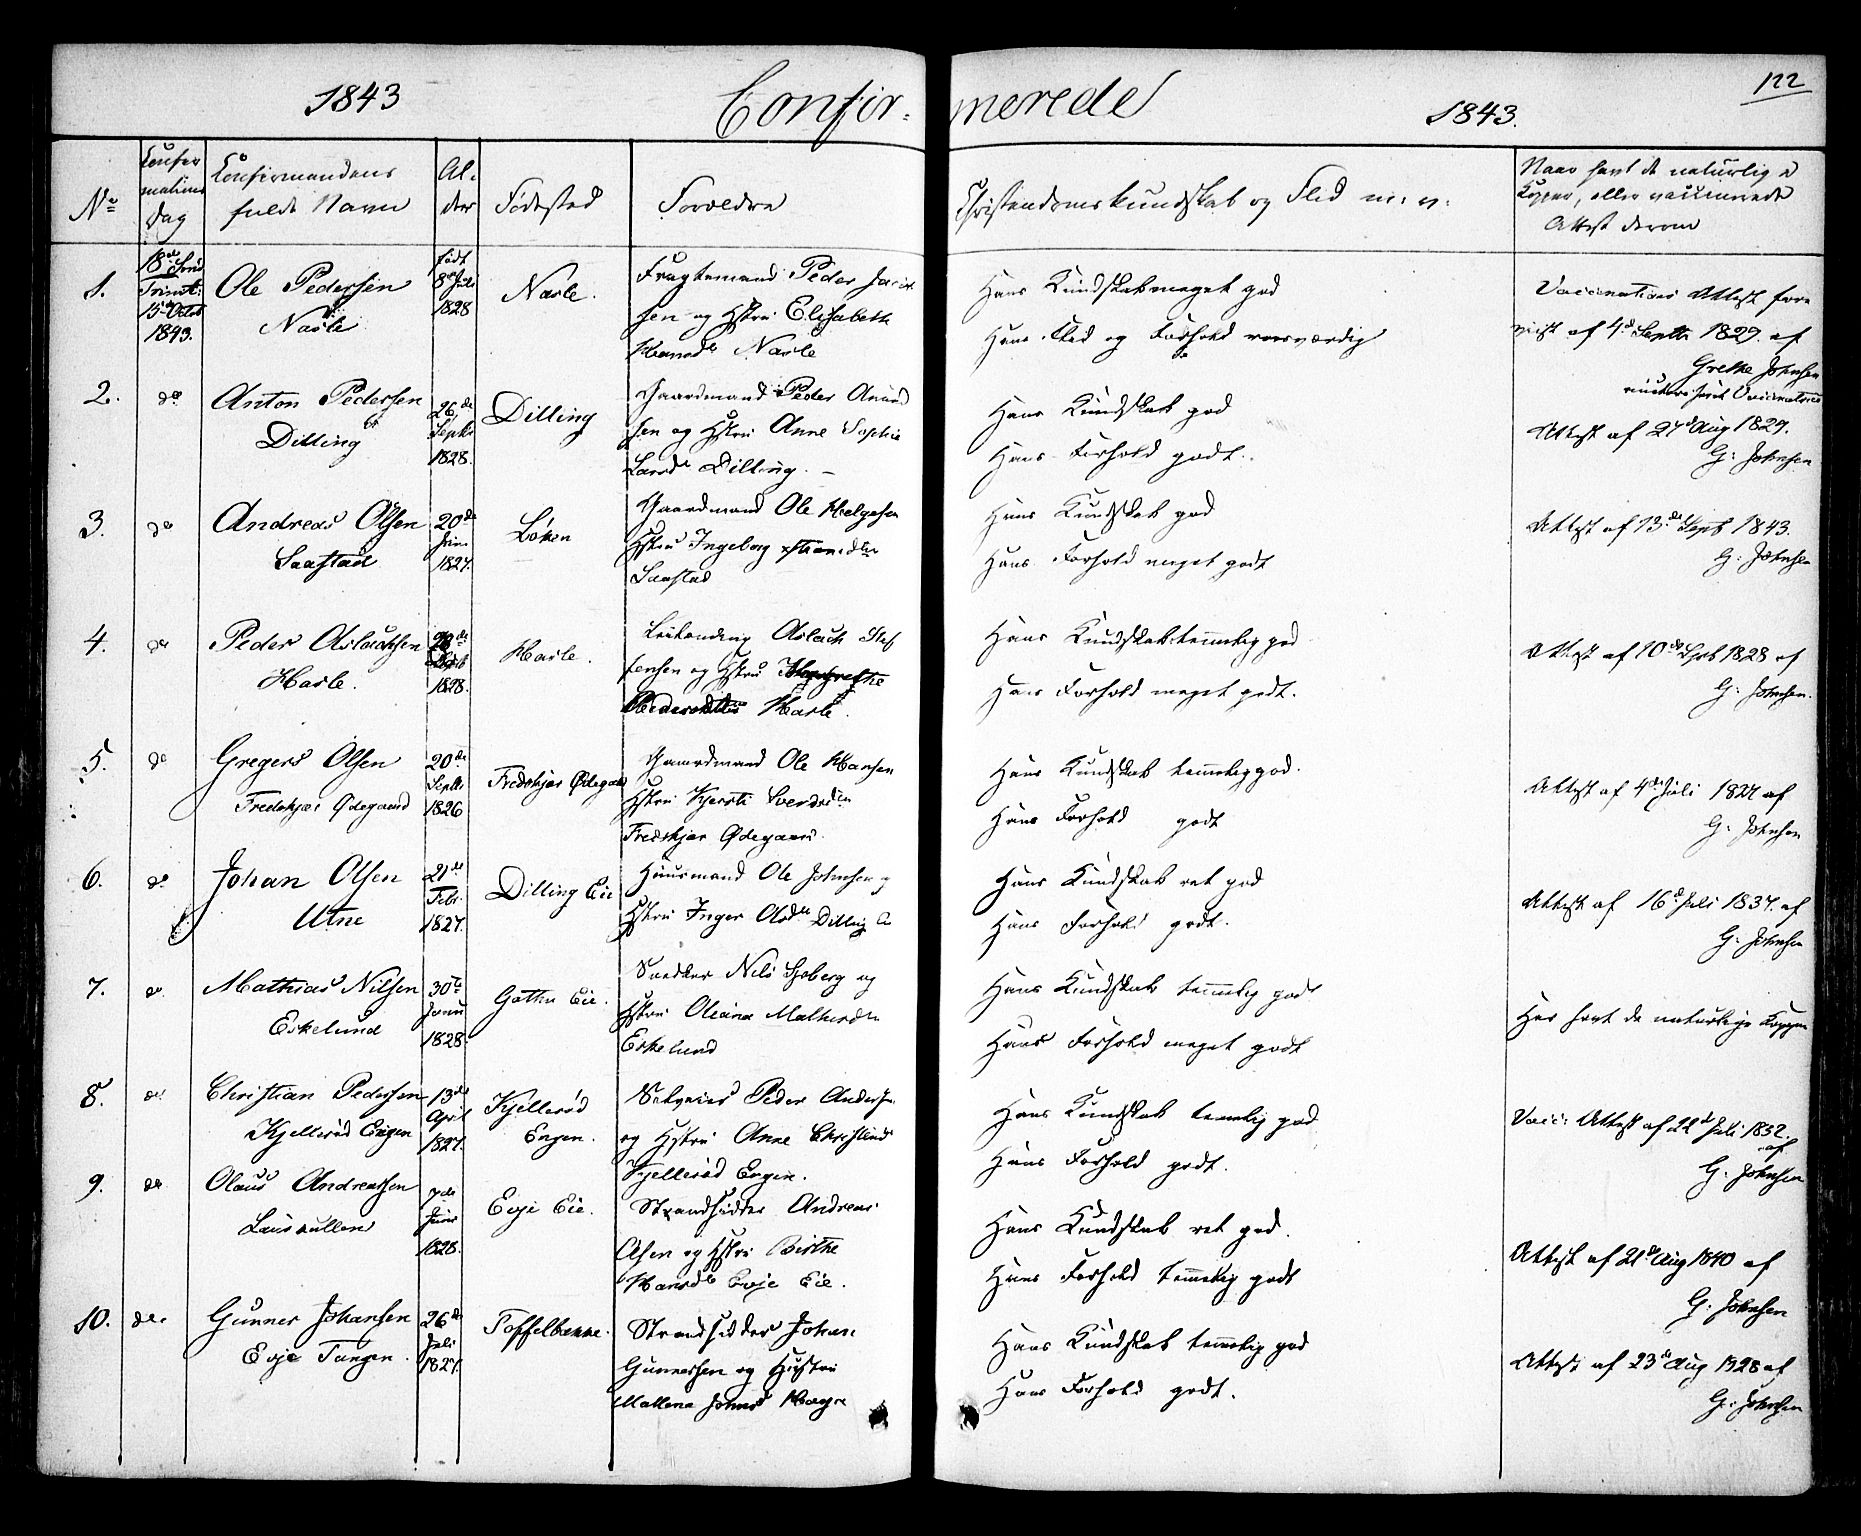 1843
Confir-
merede
1843.
122
No
Confirmations Dag
Confirmandens fulde Navn
Alder
Fødested
Forældre
Christendomskundskab og Flid m. v.
Naar havt de naturlige Kopper, eller vaccinerede Attest derom
1.
18de Sønd Trinit: 15de Octob 1843.
Ole Pedersen
Narle
født 8de Juli 1828
Narle.
Fragtemand Peder Jacobsen og Hstru Elisabeth
Hansdr Narle
Hans Kundskab meget god
Hans Flid og Forhold roesværdig
Vaccinations Attest fore
viist af 4de Septbr 1829. af
Grethe Johnsen
2.
do
Anton Pedersen
Dilling
26de Septbr 1828.
Dilling
Gaardmand Peder Amund
sen og Hstru Anne Sophie
Larsdr Dilling.
Hans Kundskab god
Hans Forhold godt.
Attest af 27d Aug 1829.
G: Johnsen
3.
do
Andreas Olsen
Saastad
20de Juni 1827.
Løken
Gaardmand Ole Helgesen
Hstru Ingeborg
Saastad
Hans Kundskab god
Hans Forhold meget godt
Attest af 13de Septb 1843.
G: Johnsen
4.
do
Peder Aslachsen
Harle.
1828.
Harle.
Aslach Stef
fensen og Hstru
Harle.
Hans Kundskab temmelig god
Hans Forhold meget godt.
Attest af 10de Septb 1828 af
G: Johnsen.
5.
do
Gregers Olsen
Fredskjær Ødegaard
20de Septbr 1826
Fredskjær Ødegaard
Gaardmand Ole Hansen
Hstru Kjersti Svendsdtr
Fredskjær Ødegaard.
Hans Kundskab temmelig god.
Hans Forhold godt
Attest af 4de Juli 1827 af
G: Johnsen
6.
do
Johan Olsen
Utne
21de Febr. 1827.
Dilling Eie
Huusmand Ole Johnsen og
Hstru Inger Olsdr Dilling
Hans Kundskab ret god
Hans Forhold godt.
Attest af 16d Juli 1837. af
G: Johnsen
7.
do
Mathias Nilsen
Eskelund
30te Janu 1828.
Eie.
Snedker Nils Sjøberg og
Hstru Oleana
Eskelund
Hans Kundskab temmelig godt
Hans Forhold meget godt
Har havt de naturlige Kopper
8.
do
Christian Pedersen
Kjellerød Engen
13de April 1827.
Kjellerød
Engen.
Peder Andersen
og Hstru Anne Christine
Kjellerød Engen.
Hans Kundskab temelig god
Hans Forhold godt.
Vacc: Attest af 22d Juli 1832.
af
G. Johnsen
9.
do
Olaus Andreassen
7de Juni 1828.
Evje Eie.
Strandsidder Andreas
Olsen og Hstru Birthe
Hansdr Evje Eie.
Hans Kundskab ret god.
Hans Forhold temmelig godt
Attest af 21de Aug 1840 af
G. Johnsen
10.
do.
Gunner Johansen
Evje Tangen.
26de Juli 1827.
Toffelbænne.
Strandsidder Johan
Gunnersen og Hustru
Mallena
Hans Kundskab temmelig god
Hans Forhold godt.
Attest af 23de Aug 1828 af
G: Johnsen